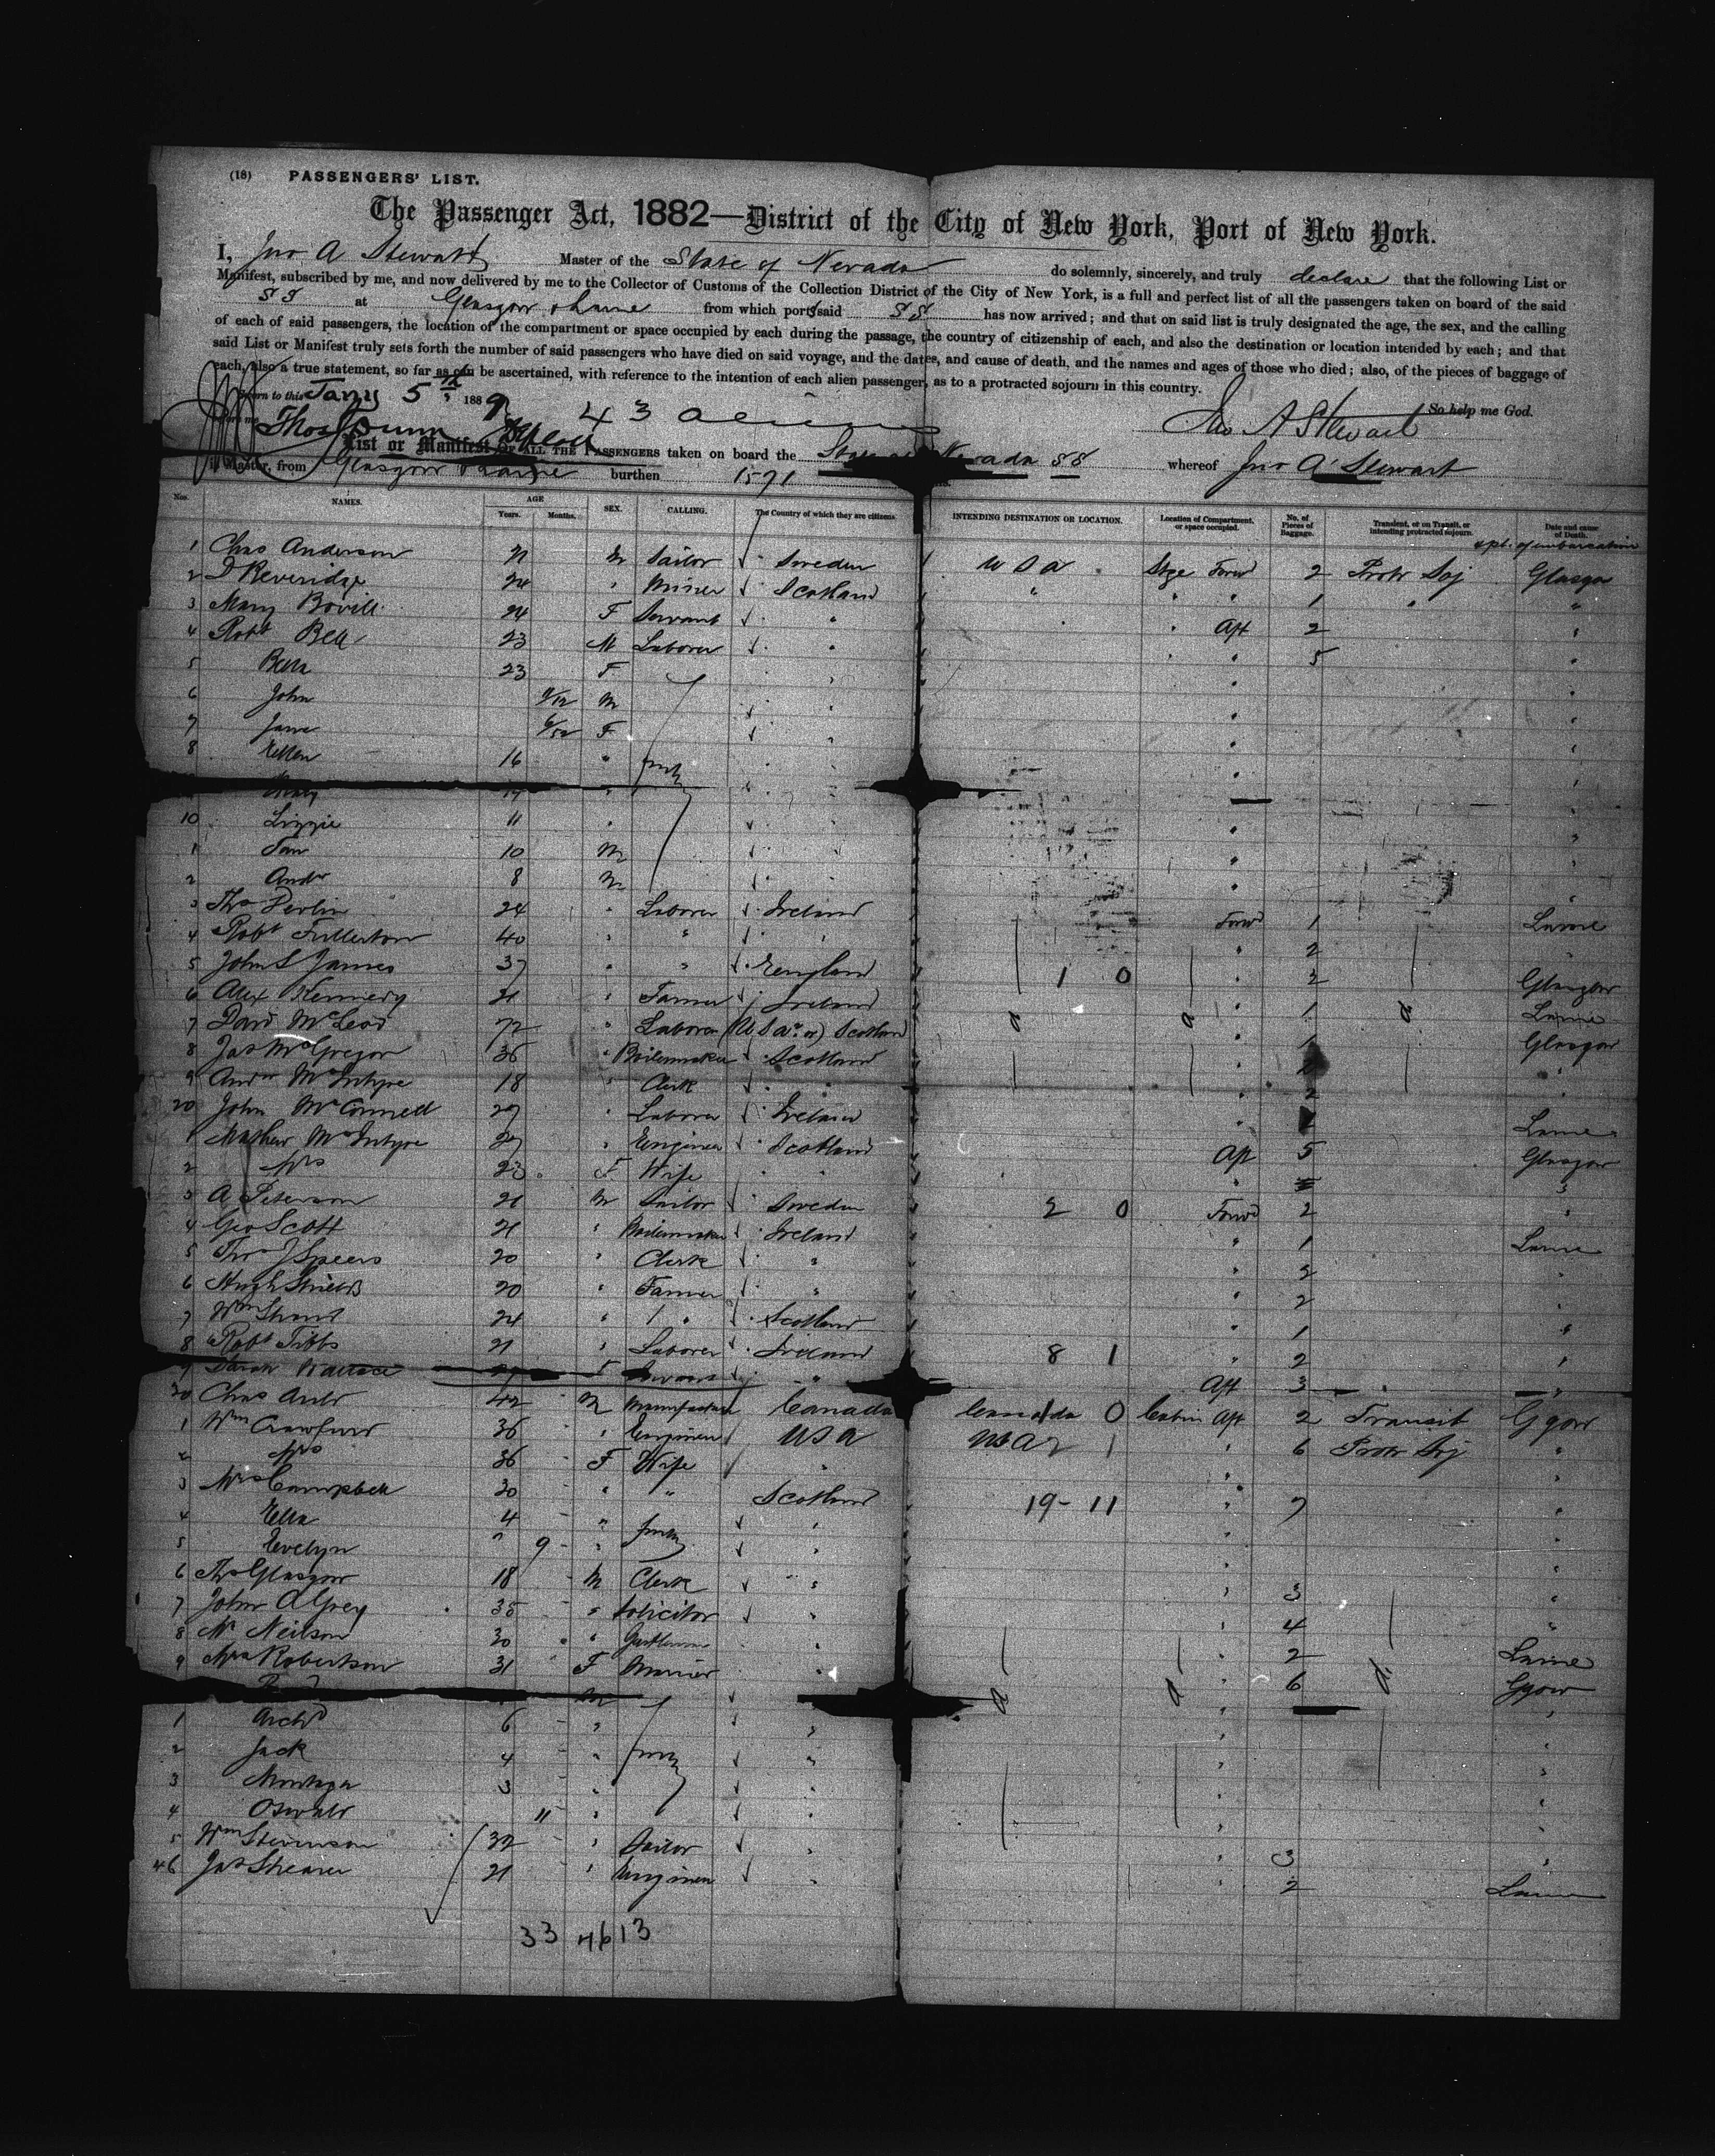 (18) PASSENGERS' LIST.
The Passenger Act, 1882—District of the City of New York, Port of New York.
I, Jno A Stewart Master of the State of Nevada do solemnly, sincerely, and truly declare that the following List or
Manifest, subscribed by me, and now delivered by me to the Collector of Customs of the Collection District of the City of New York, is a full and perfect list of all the passengers taken on board of the said
SS at Glasgow & Larne from which ports said SS has now arrived; and that on said list is truly designated the age, the sex, and the calling
of each of said passengers, the location of the compartment or space occupied by each during the passage, the country of citizenship of each, and also the destination or location intended by each; and that
said List or Manifest truly sets forth the number of said passengers who have died on said voyage, and the dates, and cause of death, and the names and ages of those who died; also, of the pieces of baggage of
each, also a true statement, so far as can be ascertained, with reference to the intention of each alien passenger, as to a protracted sojourn in this country.
Sworn to this Jany 5th 1889 43 aliens So help me God.
before me Thos Dunn Jno A Stewart
List or Manifest OF ALL THE PASSENGERS taken on board the State of Nevada SS whereof Jno A Stewart
is Master, from Glasgow & Larne burthen 1591
Nos. NAMES. AGE Years. Months. SEX. CALLING. The Country of which they are citizens. INTENDING DESTINATION OR LOCATION. Location of Compartment, or space occupied. No. of Pieces of Baggage. Transient, or on Transit, or intending protracted sojourn. Date and cause of Death.
& pt. of embarcation
1 Chas Anderson 21 M Sailor Sweden U S a Stge Forwd 2 Protr Soj Glasgow
2 24 " Miner Scotland " " " 1 " "
3 Mary Bovill 24 F Servant " " Aft 2 "
4 Robt Bell 23 M Laborer " " " 5 "
5 Bella 23 F " " "
6 John 11/12 M " " "
7 Jane 6/52 F " " "
8 Ellen 16 " fmly " " "
Mary 14 " " "
10 Lizzie 11 " " " "
1 Jas 10 M " " "
2 Andw 8 M " " "
3 Thos 24 " Laborer Ireland Forwd 1 Larne
4 Robt Fullerton 40 " " " " 2 "
5 John S James 37 " " England 1 0 " 2 Glasgow
6 Alex Kennedy 21 " Farmer Ireland " 1 Larne
7 David McLeod 72 " Laborer Scotland " 1 Glasgow
8 Jas McGregor 36 " Boilermaker Scotland " 2 "
9 Andw McIntyre 18 " Clerk " " 2 "
20 John McConnell 29 " Laborer Ireland " Larne
1 Mathew McIntyre 29 " Engineer Scotland Aft 5 Glasgow
2 Mrs 23 F Wife " " "
3 A Peterson 21 M Sailor Sweden 2 0 Forwd 2 "
4 Geo Scott 21 " Boilermaker Ireland " 1 Larne
5 Thos J Speers 20 " Clerk " " 2 "
6 Hugh Shields 20 " Farmer " " 2 "
7 Wm 24 " " Scotland " 1 "
8 Robt Tibbs 21 " Laborer Ireland 8 1 " 2 "
9 Sarah Wallace F Servant " Aft 3 "
30 Chas Auld 42 M Manufacturer Canada Canada 0 Cabin Aft 2 Transit Ggow
1 Wm Crawfurd 36 " Engineer U S a U S a 2 1 " 6 Protr Soj "
2 Mrs 36 F Wife " " "
3 Mrs Campbell 30 " " Scotland 19 - 11 " 7 "
4 Ella 4 " fmly " " "
5 Evelyn " 9 " " " "
6 Thos Glasgow 18 M Clerk " " 3 "
7 John A Grey 35 " Solicitor " " 4 "
8 Mr Neilson 30 " Gentleman " " 2 Larne
9 Mrs Robertson 31 F " " 6 Ggow
M " "
1 Archd 6 " " " "
2 Jack 4 " fmly " " "
3 3 " " " "
4 Oswald 11 " " " "
5 Wm Stevenson 32 " Sailor " " 3 "
46 Jas Shearer 21 " Engineer " " 2 Larne
33 46 13